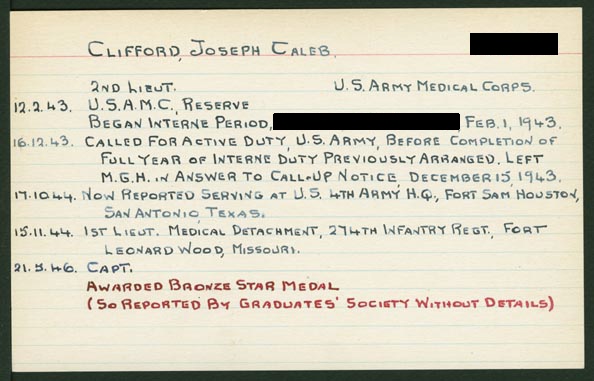 CLIFFORD, JOSEPH CALEB.
2ND LIEUT. U.S. ARMY MEDICAL CORPS.
12.2.43. U.S.A.M.C., RESERVE
BEGAN INTERNE PERIOD, FEB. 1, 1943.
16.12.43. CALLED FOR ACTIVE DUTY, U.S. ARMY, BEFORE COMPLETION OF
FULL YEAR OF INTERNE DUTY PREVIOUSLY ARRANGED. LEFT
M.G.H. IN ANSWER TO CALL-UP NOTICE, DECEMBER 15, 1943.
17.10.44. NOW REPORTED SERVING AT U.S. 4TH ARMY, H.Q., FORT SAM HOUSTON,
SAN ANTONIO, TEXAS.
15.11.44. 1ST LIEUT. MEDICAL DETACHMENT, 274TH INFANTRY REGT., FORT
LEONARD WOOD, MISSOURI.
21.5.46. CAPT.
AWARDED BRONZE STAR MEDAL
(SO REPORTED BY GRADUATES' SOCIETY WITHOUT DETAILS)